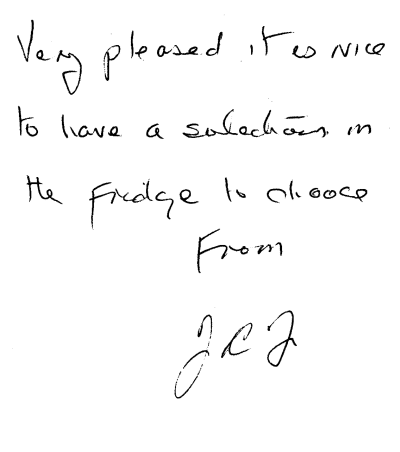 Very pleased it is nice
to have a selection in
the fridge to choose
From
J C J